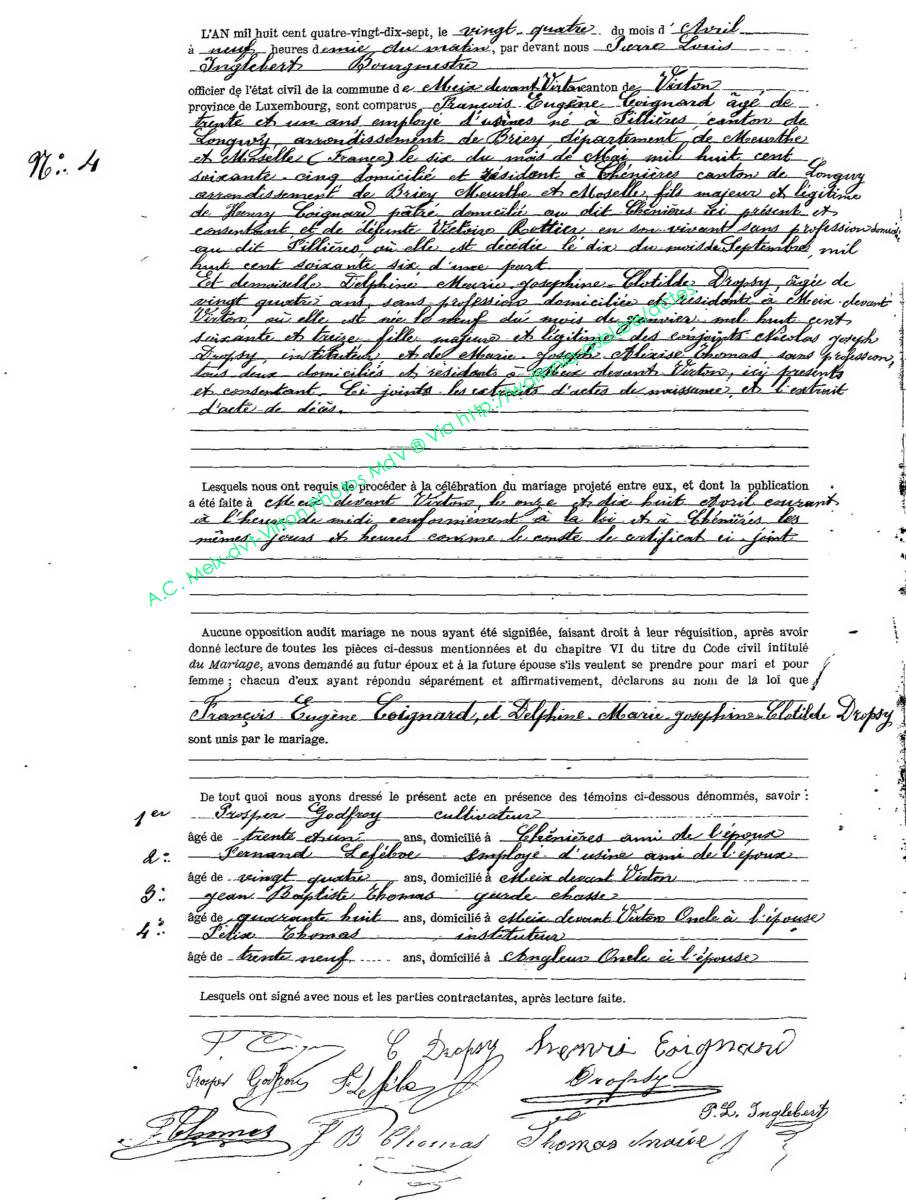 L'AN mil huit cent quatre-vingt-dix-sept, le vingt quatre du mois d' Avril
à neuf heures demie du matin, par devant nous Pierre Louis
Inglebert Bourgmestre
officier de l'état civil de la commune de Meix devant Virton canton de Virton
province de Luxembourg, sont comparus François Eugène Coignard âgé de
trente et un ans employé d'usines né à Fillières canton de
Longwy, arrondissement de Briey département de Meurthe
N°. 4
et Moselle (France) le six du mois de Mai mil huit cent
soixante cinq domicilié et résidant à Chénières canton de Longwy
arrondissement de Briey Meurthe et Moselle, fils majeur et légitime
de Henry Coignard pâtre domicilié au dit Chénières ici présent et
consentant et de défunte Victoire Rottier en son vivant sans profession domiciliée
au dit Fillières, où elle est décédée le dix du mois de Septembre mil
huit cent soixante six d'une part
Et demoiselle Delphine Marie-Josephine-Clotilde Dropsy, âgée de
vingt quatre ans, sans profession domiciliée et résidante à Meix-devant
Virton où elle est née le neuf du mois de janvier mil huit cent
soixante et treize fille majeure et légitime des conjoints Nicolas Joseph
Dropsy, instituteur et de Marie-Joseph Thomas sans profession,
tous deux domiciliés et résidant à Meix devant Virton, ici présents
et consentant. Ci joints les extraits d'actes de naissance, et l'extrait
d'acte de décès.
A.C. Meix-dvt-Virton Photos MdV ® Via http://
Lesquels nous ont requis de procéder à la célébration du mariage projeté entre eux, et dont la publication
a été faite à Meix devant Virton, le onze et dix huit Avril courant
à l'heure de midi, conformément à la loi et à Chénières les
mêmes jours et heures comme le conste le certificat ci-joint
Aucune opposition audit mariage ne nous ayant été signifiée, faisant droit à leur réquisition, après avoir
donné lecture de toutes les pièces ci-dessus mentionnées et du chapitre VI du titre du Code civil intitulé
du Mariage, avons demandé au futur époux et à la future épouse s'ils veulent se prendre pour mari et pour
femme ; chacun d'eux ayant répondu séparément et affirmativement, déclarons au nom de la loi que
François Eugène Coignard, et Delphine-Marie-Josephine-Clotilde Dropsy
sont unis par le mariage.
De tout quoi nous avons dressé le présent acte en présence des témoins ci-dessous dénommés, savoir :
1er Prosper Godfroy cultivateur
âgé de trente et un ans, domicilié à Chénières ami de l'époux
2° Fernand Lefébve employé d'usine ami de l'époux
âgé de vingt quatre ans, domicilié à Meix devant Virton
3° Jean Baptiste Thomas garde chasse
âgé de quarante huit ans, domicilié à Meix devant Virton Oncle à l'épouse
4° Félix Thomas instituteur
âgé de trente neuf ans, domicilié à Angleur Oncle à l'épouse
Lesquels ont signé avec nous et les parties contractantes, après lecture faite.
C Dropsy Henri Coignard
Prosper Godfroy Dropsy
P. L. Inglebert
F. Thomas J B Thomas Thomas